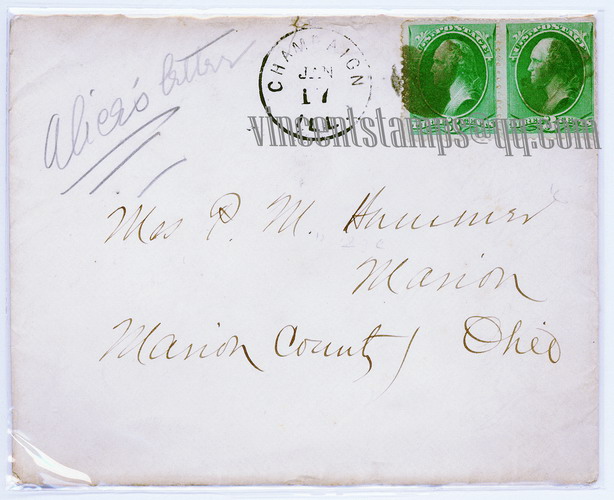 Alice's letter
CHAMPAIGN
JAN
17
ILL.
U.S. POSTAGE
U.S. POSTAGE
vincentstamps@qq.com
Mrs P. M. Hammer
Marion
Marion County Ohio